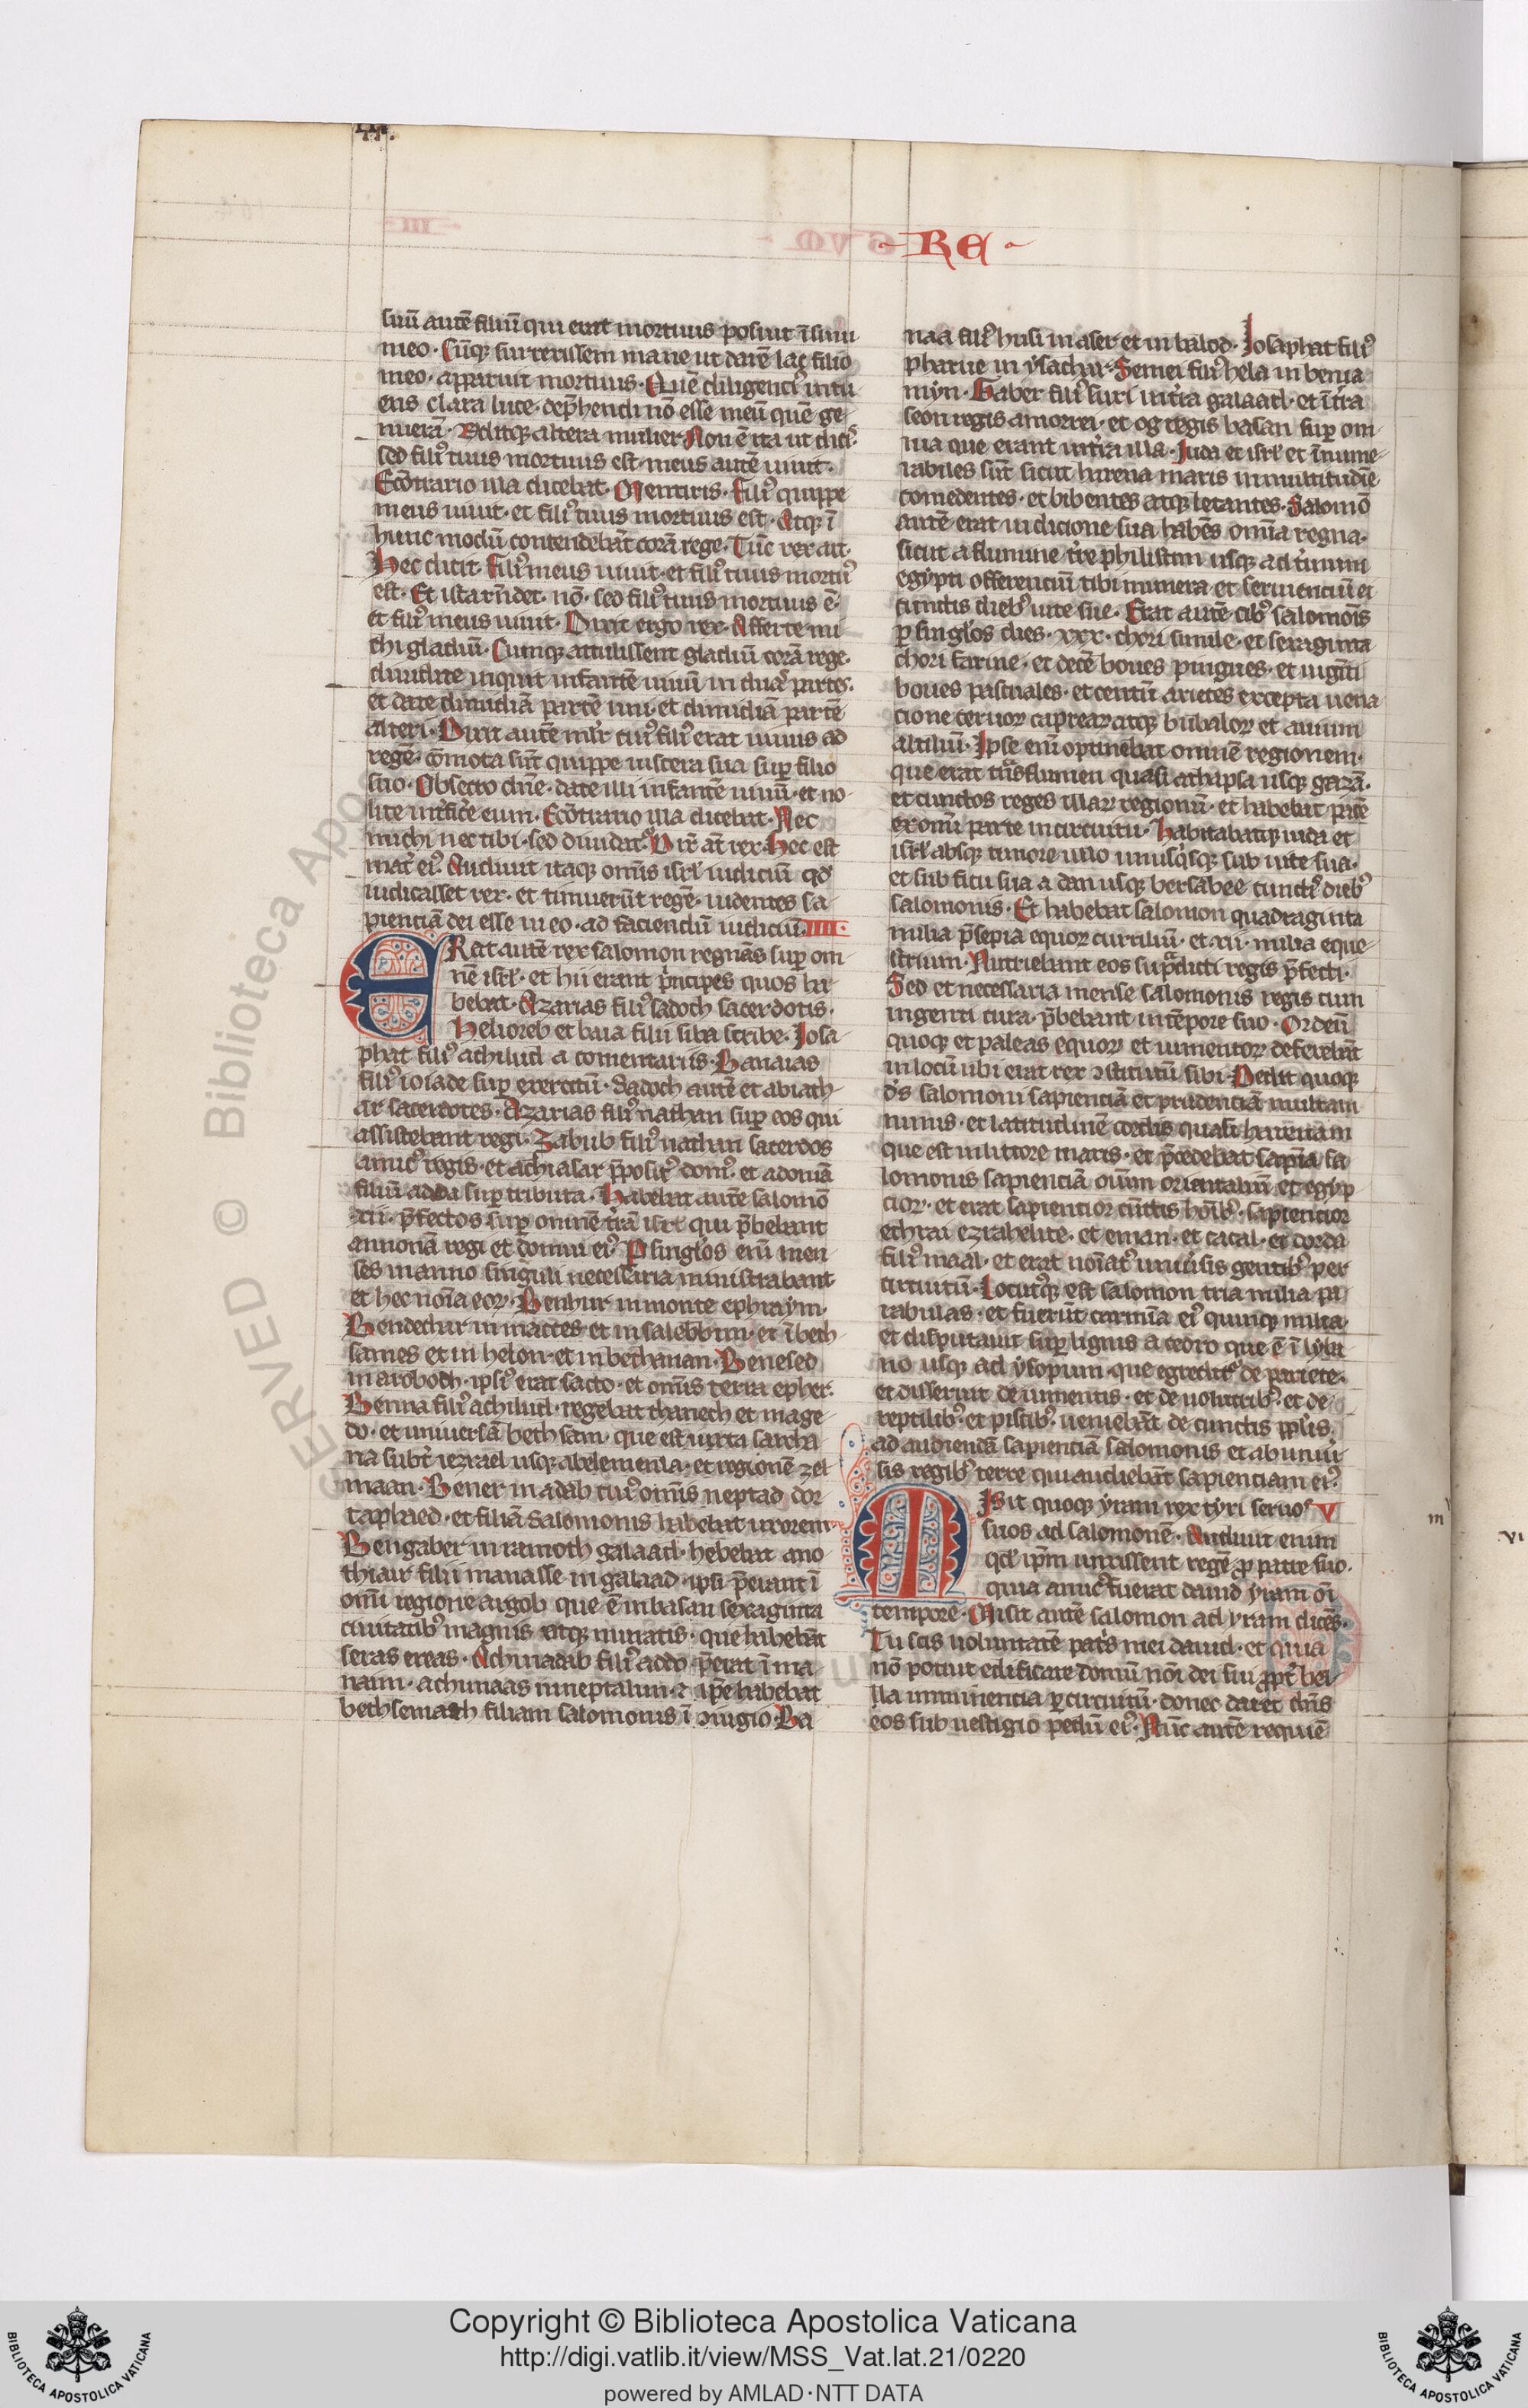 RE
suū autē filiū qui erat mortuus posuit ī sinu
meo. Cūq; surrexissem mane ut darē lac filio
meo. apparuit mortuus. Quē diligenciꝰ intu
ens clara luce. dep̄hendi nō esse meū quē ge
nuerā. Rditq; altera mulier Non ē ita ut dicis
sed filiꝰ tuus mortuus est. meus autē uiuit.
Ecōtrario illa dicebat. Mentiris. filiꝰ quippe
meus uiuit. et filiꝰ tuus mortuus est. Atq; ī
hunc modū contendebāt corā rege. Tūc rex ait.
Hec dicit. filiꝰ meus uiuit. et filiꝰ tuus mortuꝰ
est. Et ista rn̄det. nō. sed filiꝰ tuus mortuus ē.
et filiꝰ meus uiuit. Dixit ergo rex. Afferte mi
chi gladiū. Cumq; attulissent gladiū corā rege.
diuidite inquit infantē uiuū in duas partes.
et date dimidiā partē uni. et dimidiā partē
alteri. Dixit autē mlr̄ cuiꝰ filiꝰ erat uiuus ad
regē. cōmota sūt quippe uiscera sua sup filio
suo. Obsecro dn̄e. date illi infantē uiuū. et no
lite int̄ficē eum. Ecōtrario illa dicebat. Nec
michi nec tibi. sed diuidatꝰ. Dix̄ āt rex. Hec est
mat̄ eiꝰ. Audiuit itaq; omīs isrl̄ iudiciū qd̄
iudicasset rex. et timuerūt regē. uidentes sa
pienciā dei esse in eo. ad faciendū iudiciū. IIII.
ERat autē rex salomon regnās sup om
nē isrl̄. et hii erant p̄ncipes quos ha
bebat. Azarias filiꝰ sadoch sacerdotis.
Helioreb et baia filii siba scribe. Iosa
phat filiꝰ achilud a comentariis. Banaias
filiꝰ ioiade sup exercitū. Sadoch autē et abiath
ar sacerdotes. Azarias filiꝰ nathan sup eos qui
assistebant regi. Zabub filiꝰ nathan sacerdos
amicꝰ regis. et achiasar p̄positꝰ domꝰ. et adonirā
filiū adda sup tributa. Habebat autē salomō
xii. p̄fectos sup omnē t̄rā isrl̄ qui p̄bebant
annonā regi et domui eiꝰ. P singlos enī men
ses in anno singuli necessaria ministrabant
et hec noīa eoꝝ. Benhur in monte ephraym.
Bendechar in macces et in salebbim. et ī beth
sames et in helon. et in bethanan. Benesed
in aroboth. ipsiꝰ erat socto. et omīs terra epher.
Benna filiꝰ achilud. regebat thanech et mage
do. et uniuersā beth san. que est iuxta sartha
na subt̄ iezrael usq; abelemeula. et regionē zel
maan. Bener in adab cuiꝰ omīs neptad dor
taphaed. et filiā Salomonis habebat uxorem.
Bengaber in ramoth galaad. hebebat ano
thiair filii manasse in galaad. ipsi p̄erant ī
omī regione argob que ē in basan sexaginta
ciuitatibꝰ magnis atq; muratis. que habebāt
seras ereas. Achinadab filiꝰ addo p̄erat ī ma
naim. achimaas in neptalim. ⁊ ip̄e habebat
bethsemath filiam salomonis ī ꝯiugio. Ba
naa filiꝰ husi in aser et in balod. Iosaphat filiꝰ
pharue in ysachar. Semei filiꝰ hela in benia
myn. Gaber filiꝰ suri in t̄ra galaad. et ī t̄ra
seon regis amorrei. et og regis basan sup om
nia que erant in t̄ra illa. Iuda et isrl̄ et īnume
rabiles sūt sicut harena maris in multitudīe
comedentes. et bibentes atq; letantes. Salomō
autē erat in dicione sua habēs omīa regna.
sicut a flumine t̄re philistim usq; ad t̄minū
egypti offerenciū sibi munera et seruienciū ei
cunctis diebꝰ uite sue. Erat autē cibꝰ salomōis
p singlos dies. xxx. chori simile. et sexaginta
chori farine. et decē boues pingues. et uigīti
boues pascuales. et centū arietes excepta uena
cione ceruoꝝ capreaꝝ atq; bubaloꝝ et auium
altiliū. Ipse enī optinebat omnē regionem.
que erat tn̄s flumen quasi athapsa usq; gazā.
et cunctos reges illaꝝ regionū. et habebat pacē
ex omī parte in circuitu. Habitabatq; iuda et
isrl̄ absq; timore ullo unusqisq; sub uite sua.
et sub ficu sua a dan usq; bersabee cunctꝭ diebꝰ
salomonis. Et habebat salomon quadraginta
milia p̄sepia equoꝝ curriliū. et xii. milia eque
strium. Nutriebant eos sup̄dicti regis p̄fecti.
Sed et necessaria mense salomonis regis cum
ingenti cura. p̄bebant in tēpore suo. Ordeū
quoq; et paleas equoꝝ et iumentoꝝ deferebāt
in locū ubi erat rex ꝯstitutū sibi. Dedit quoq;
ds̄ salomoni sapienciā et prudenciā multam
nimis. et latitudinē cordis quasi harenam
que est in littore maris. et p̄cedebat sapīa sa
lomonis sapienciā oīum orientaliū et egyp
cioꝝ. et erat sapiencior cūctis hoībꝰ. sapiencior
echrai ezrahelite. et eman. et cacal. et dorda
filiꝰ maal. et erat noīatꝰ in uniūsis gentibꝰ per
circuitū. Locutꝰq; est salomon tria milia pa
rabulas. et fuerūt carmīa eiꝰ quinq; milia.
et disputauit sup lignis a cedro que ē ī lyba
no usq; ad ysopum. que egreditꝰ de pariete.
et disseruit de iumentis. et de uolucribꝰ. et de
reptilibꝰ. et piscibꝰ. ueniebāt de cunctis pplis.
ad audiendā sapienciā salomonis et ab uniū
sis regibꝰ terre qui audiebāt sapienciam eiꝰ.
MIsit quoq; yram rex tyri seruos V
suos ad salomonē. Audiuit enim
qd̄ ip̄m unxissent regē ꝓ patre suo.
quia amicꝰ fuerat dauid yram oī
tempore. Misit autē salomon ad yram dicēs.
Tu scis uoluntatē patꝭs mei dauid. et quia
nō potuit edificare domū noī dei sui ꝓpt̄ bel
lla imminencia p circuitū. donec daret dn̄s
eos sub uestigio pedū eiꝰ. Nūc autē requiē
m
VI
RESERVED © Biblioteca Apos
Copyright © Biblioteca Apostolica Vaticana
http://digi.vatlib.it/view/MSS_Vat.lat.21/0220
powered by AMLAD·NTT DATA
BIBLIOTECA APOSTOLICA VATICANA
BIBLIOTECA APOSTOLICA VATICANA